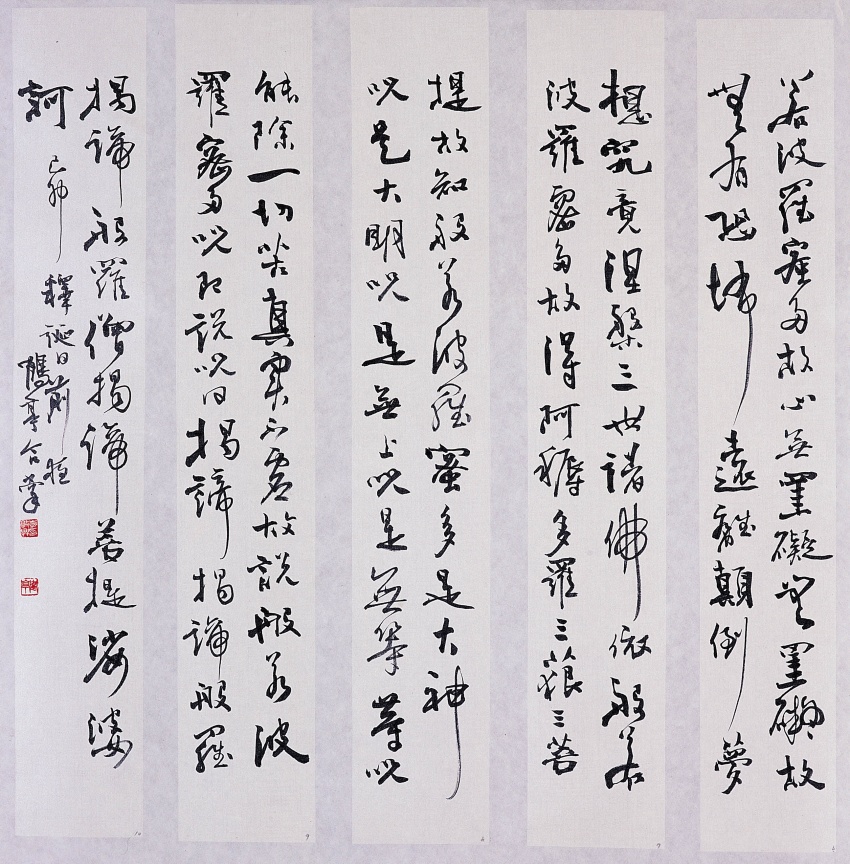 若波羅蜜多故心無罣礙無罣礙故
無有恐怖遠離顛倒夢
想究竟涅槃三世諸佛依般若
波羅蜜多故得阿耨多羅三藐三菩
提故知般若波羅蜜多是大神
呪是大明呪是無上呪是無等等呪
能除一切苦真實不虛故說般若波
羅蜜多呪即說呪曰揭諦揭諦般羅
揭諦般羅僧揭諦菩提娑婆
訶 己卯
釋誕日前
亭合掌